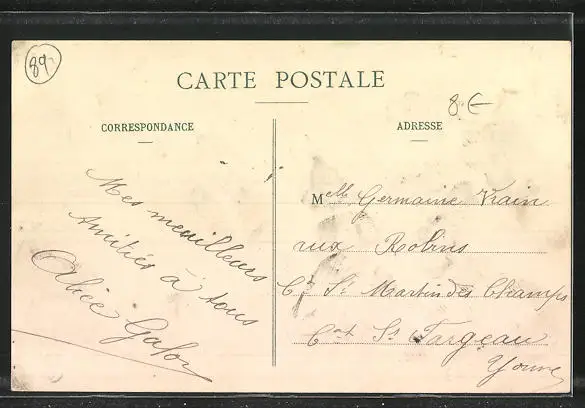 89
CARTE POSTALE
8 €
CORRESPONDANCE
Mes meuilleurs
Amitiés à tous
Alice
ADRESSE
Melle Germaine
aux Robins
Cne St Martin des Champs
Cat St Fargeau
Yonne